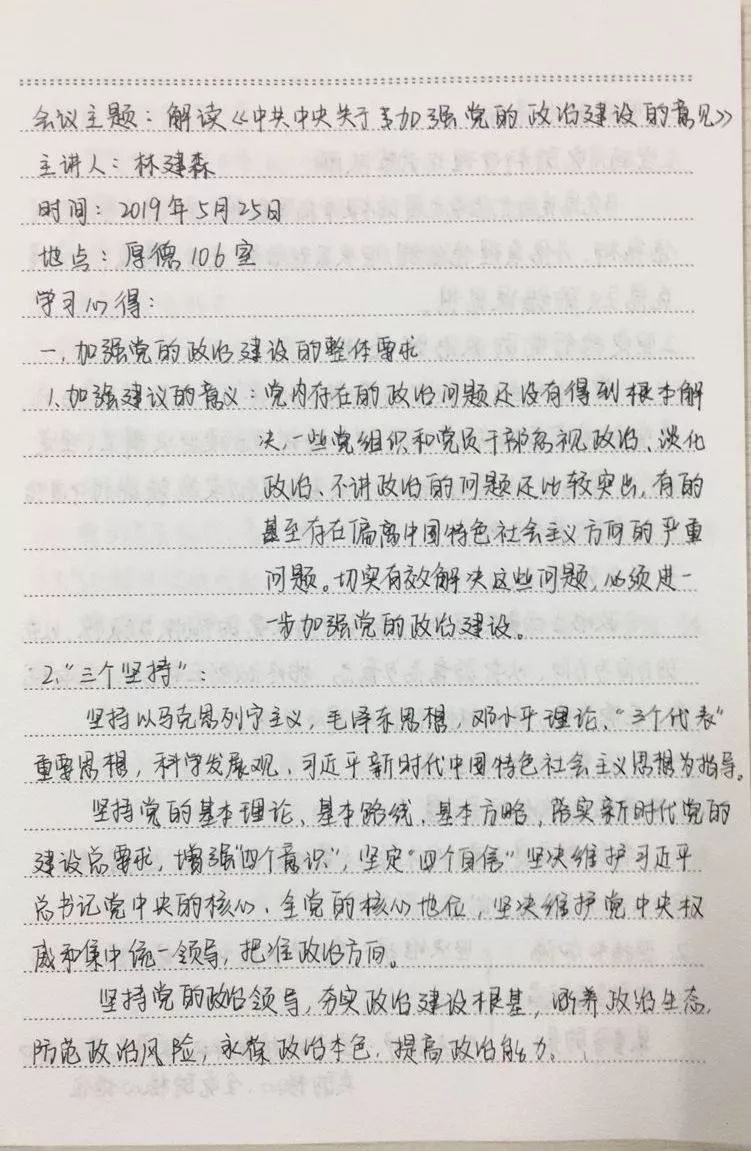 会议主题：解读《中共中央关于加强党的政治建设的意见》
主讲人：林建森
时间：2019年5月25日
地点：厚德106室
学习心得：
一、加强党的政治建设的整体要求
1.加强建议的意义：党内存在的政治问题还没有得到根本解
决，一些党组织和党员干部忽视政治、淡化
政治、不讲政治的问题还比较突出，有的
甚至存在偏离中国特色社会主义方向的严重
问题。切实有效解决这些问题，必须进一
步加强党的政治建设。
2."三个坚持"：
坚持以马克思列宁主义，毛泽东思想，邓小平理论、"三个代表"
重要思想，科学发展观、习近平新时代中国特色社会主义思想为指导。
坚持党的基本理论、基本路线、基本方略，落实新时代党的
建设总要求，增强"四个意识"，坚定"四个自信"坚决维护习近平
总书记党中央的核心、全党的核心地位，坚决维护党中央权
威和集中统一领导，把准政治方向。
坚持党的政治领导，夯实政治建设根基，涵养政治生态，
防范政治风险，永葆政治本色，提高政治能力。